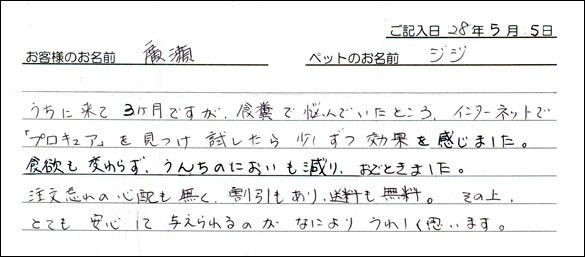 ご記入日 28年5月5日
お客様のお名前 廣瀬 ペットのお名前 ジジ
うちに来て 3ヶ月ですが、食糞で悩んでいたところ、インターネットで
「プロキュア」を見つけ 試したら 少しずつ 効果を感じました。
食欲も変わらず、うんちのにおいも減り、おどろきました。
注文忘れの心配も無く、割引もあり、送料も無料。その上、
とても 安心して 与えられるのが なにより うれしく思います。